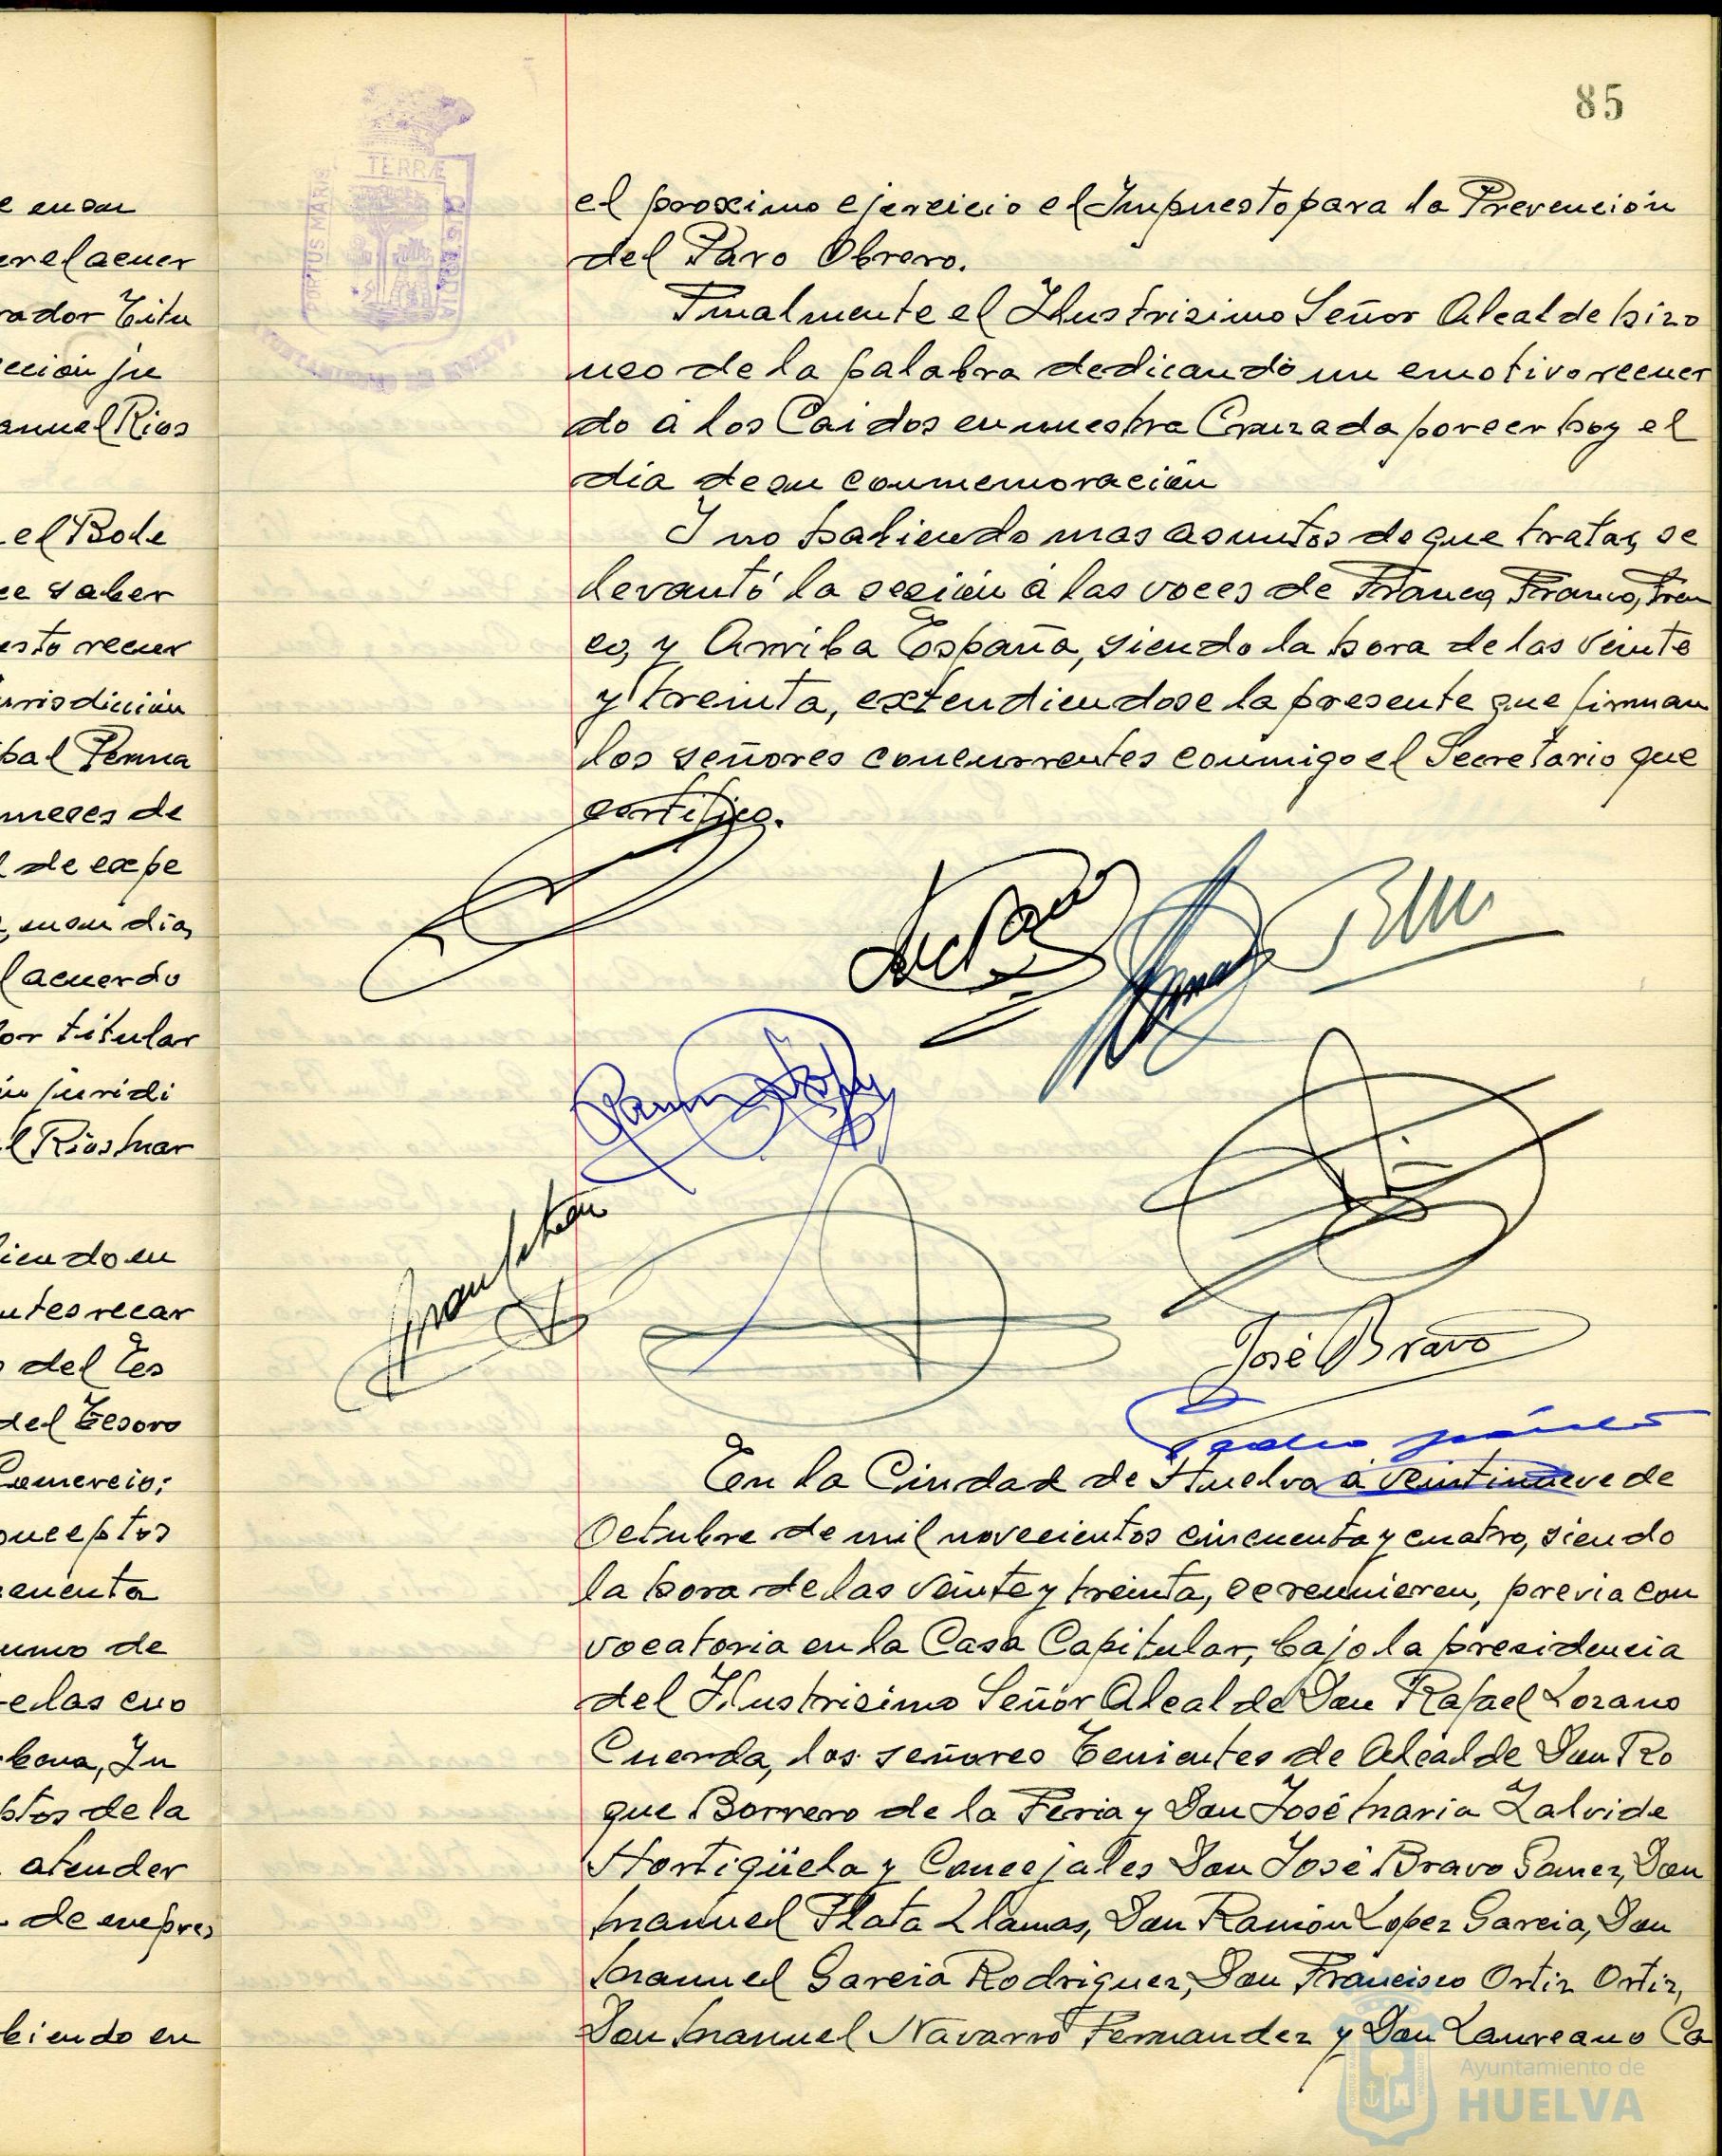 85
TERRÆ
PORTUS MARIS
CUSTODIA
AYUNTAMIENTO DE HUELVA
e en su
er el acuer
rador Titu
cción ju
anuel Rios
el Bole
ce saber
esto recur
urisdición
bal Perma
meses de
de expe
en su dia,
l acuerdo
or titular
juridi
el Rios Mar
iendo en
ntes recar
del Tes
del Tesoro
Comercio;
onceptos
cuenta
umo de
e las cuo
In
stos de la
atender
de empres
biendo en
el proximo ejercicio el Impuesto para la Prevención
del Paro Obrero.
Finalmente el Ilustrisimo Señor Alcalde hizo
uso de la palabra dedicando un emotivo recuer
do a los Caidos en nuestra Cruzada por ser hoy el
dia de su conmemoración
Y no habiendo mas asuntos de que tratar, se
levantó la sesión a las voces de Franco, Franco, Fran
co, y Arriba España, siendo la hora de las veinte
y treinta, extendiendose la presente que firman
los señores concurrentes conmigo el Secretario que
certifico.
José Bravo
En la Ciudad de Huelva a veintinueve de
Octubre de mil novecientos cincuenta y cuatro, siendo
la hora de las veinte y treinta, se reunieron, previa con
vocatoria en la Casa Capitular, bajo la presidencia
del Ilustrisimo Señor Alcalde Don Rafael Lozano
Cuerda, los señores Tenientes de Alcalde Don Ro
que Borrero de la Feria y Don José Maria Zalvide
Hortigüela y Concejales Don José Bravo Gamez, Don
Manuel Plata Llamas, Don Ramón Lopez Garcia, Don
Manuel Garcia Rodriguez, Don Francisco Ortiz Ortiz,
Don Manuel Navarro Fernandez y Don Laureano Ca
Ayuntamiento de
HUELVA